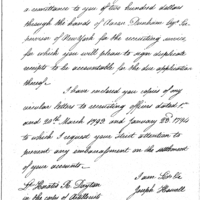 a remittance to you of two hundred dollars
through the hands of Aaron Dunham Esqr. Co
of New York for the recruiting service
for which you will please to sign duplicate
receipts to be accountable for the due application
thereof.
I have enclosed you copies of my
circular letter to recruiting officers dated 1st
and 20th March 1792 and January 23d 1794
to which I request your strict attention to
prevent any embarrassment on the settlement
of your accounts.
I am Sir &c
Joseph Howell
Lt Dayton
in the corps of Artillerists